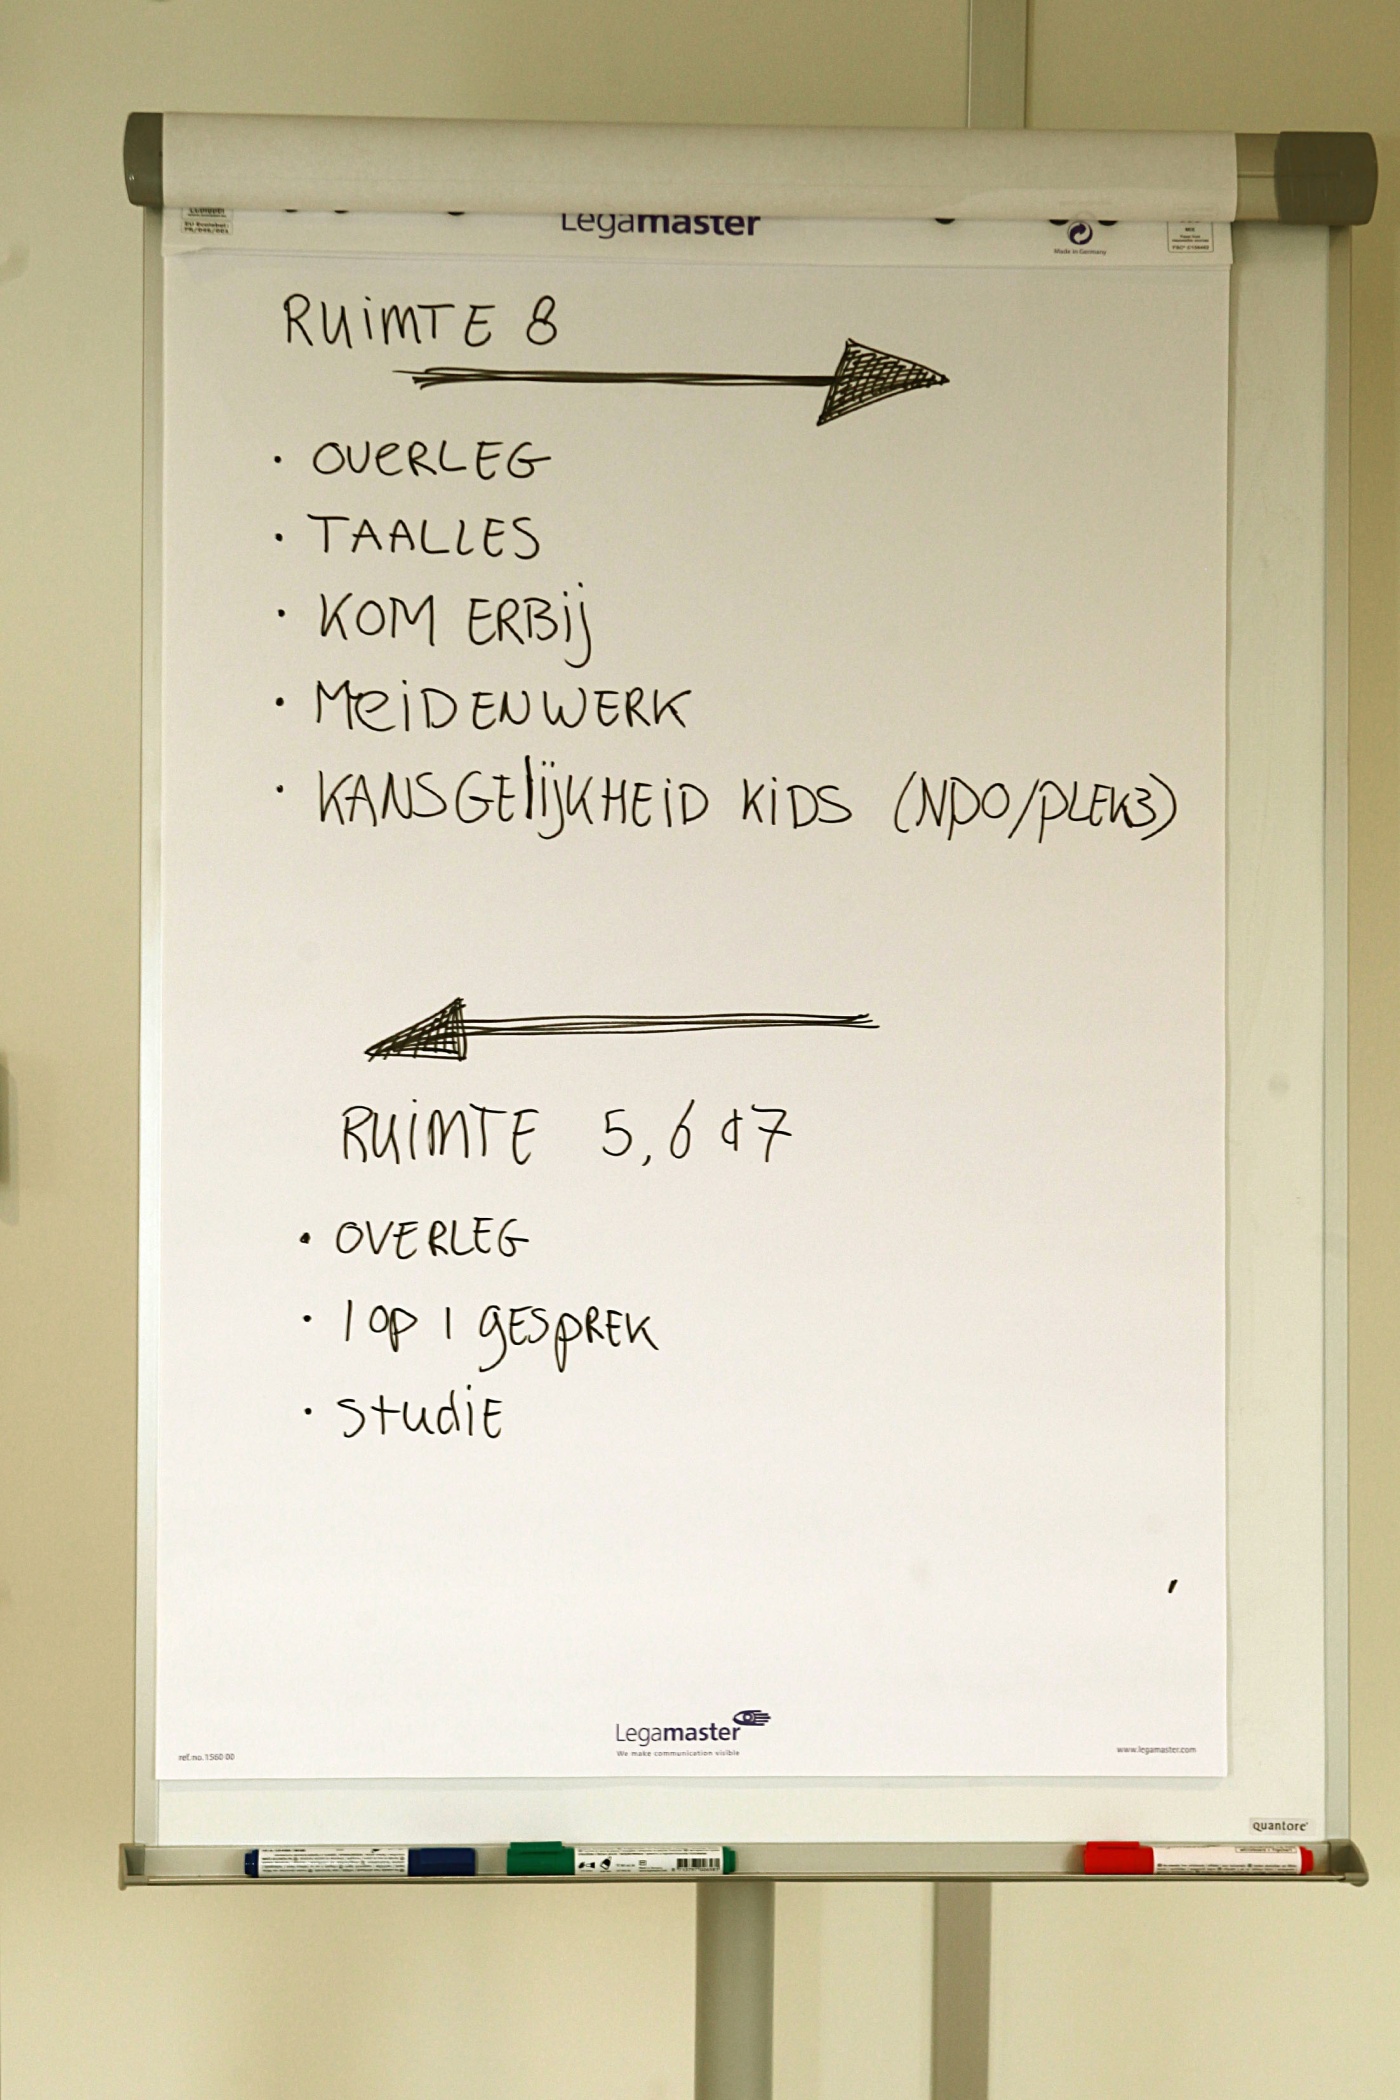 Legamaster
Made in Germany
RUIMTE 8
• OVERLEG
• TAALLES
• KOM ERBIJ
• MEIDENWERK
• KANSGELIJKHEID KIDS (NPO/PLEK3)
RUIMTE 5, 6 & 7
• OVERLEG
• 1 OP 1 GESPREK
• STUDIE
Legamaster
We make communication visible
ref.no. 1560 00
www.legamaster.com
quantore